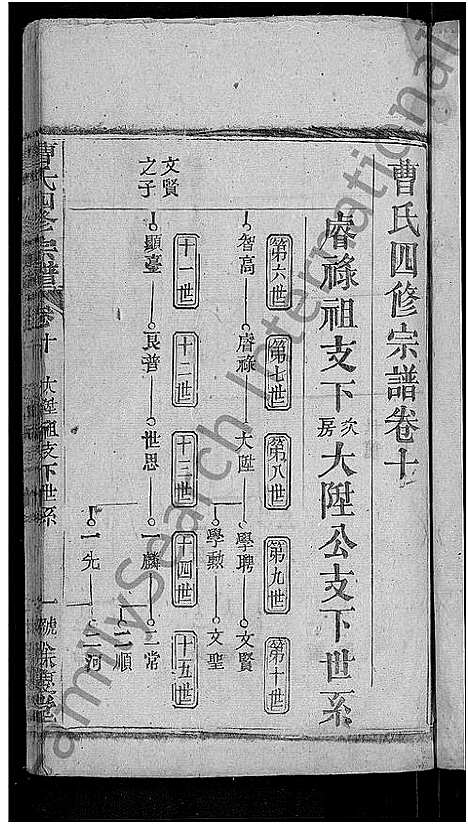 曹氏四修宗譜卷十
睿祿祖支下次房大陞公支下世系
第六世 第七世 第八世 第九世 第十世
智高 睿祿 大陞 學聘 文賢
學勲 文聖
十一世 十二世 十三世 十四世 十五世
文賢之子
顯臺 良普 世思 一麟 二常
二順
一先 二河
曹氏四修宗譜 卷十 大陞祖支下世系 一號
FamilySearch International